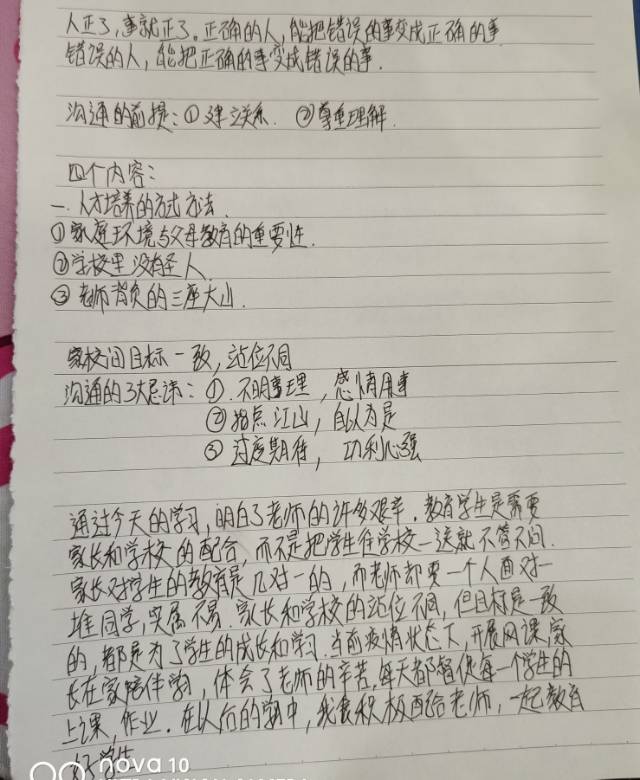 人正了，事就正了。正确的人，能把错误的事变成正确的事
错误的人，能把正确的事变成错误的事．
沟通的前提：①建立关系． ②尊重理解．
四个内容：
一．人才培养的方式方法．
①家庭环境与父母教育的重要性．
②学校里没有圣人
③老师背负的三座大山．
家校间目标一致，站位不同
沟通的3大忌讳：①．不明事理，感情用事
②指点江山，自以为是
③过度期待，功利心强
通过今天的学习，明白了老师的许多艰辛．教育学生是需要
家长和学校的配合，而不是把学生往学校一送就不管不问．
家长对学生的教育是几对一的，而老师却要一个人面对一
堆同学，实属不易．家长和学校的站位不同，但目标是一致
的，都是为了学生的成长和学习．当前疫情状态下，开展网课，家
长在家陪伴学习，体会了老师的辛苦．每天都督促每一个学生的
上课，作业．在以后的学习中，我会积极配合老师，一起教育
好学生
nova 10